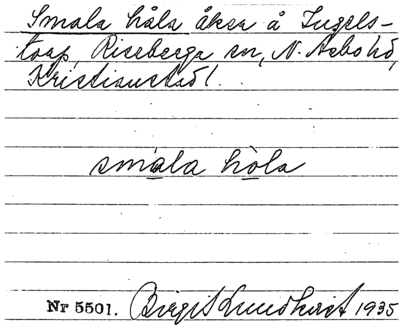 Smala håla åker å Ingels-
torp, Riseberga sn, N. Åsbo hd,
Kristianstad l.
småla hòla
Nr 5501. Birgit Lundkvist 1935